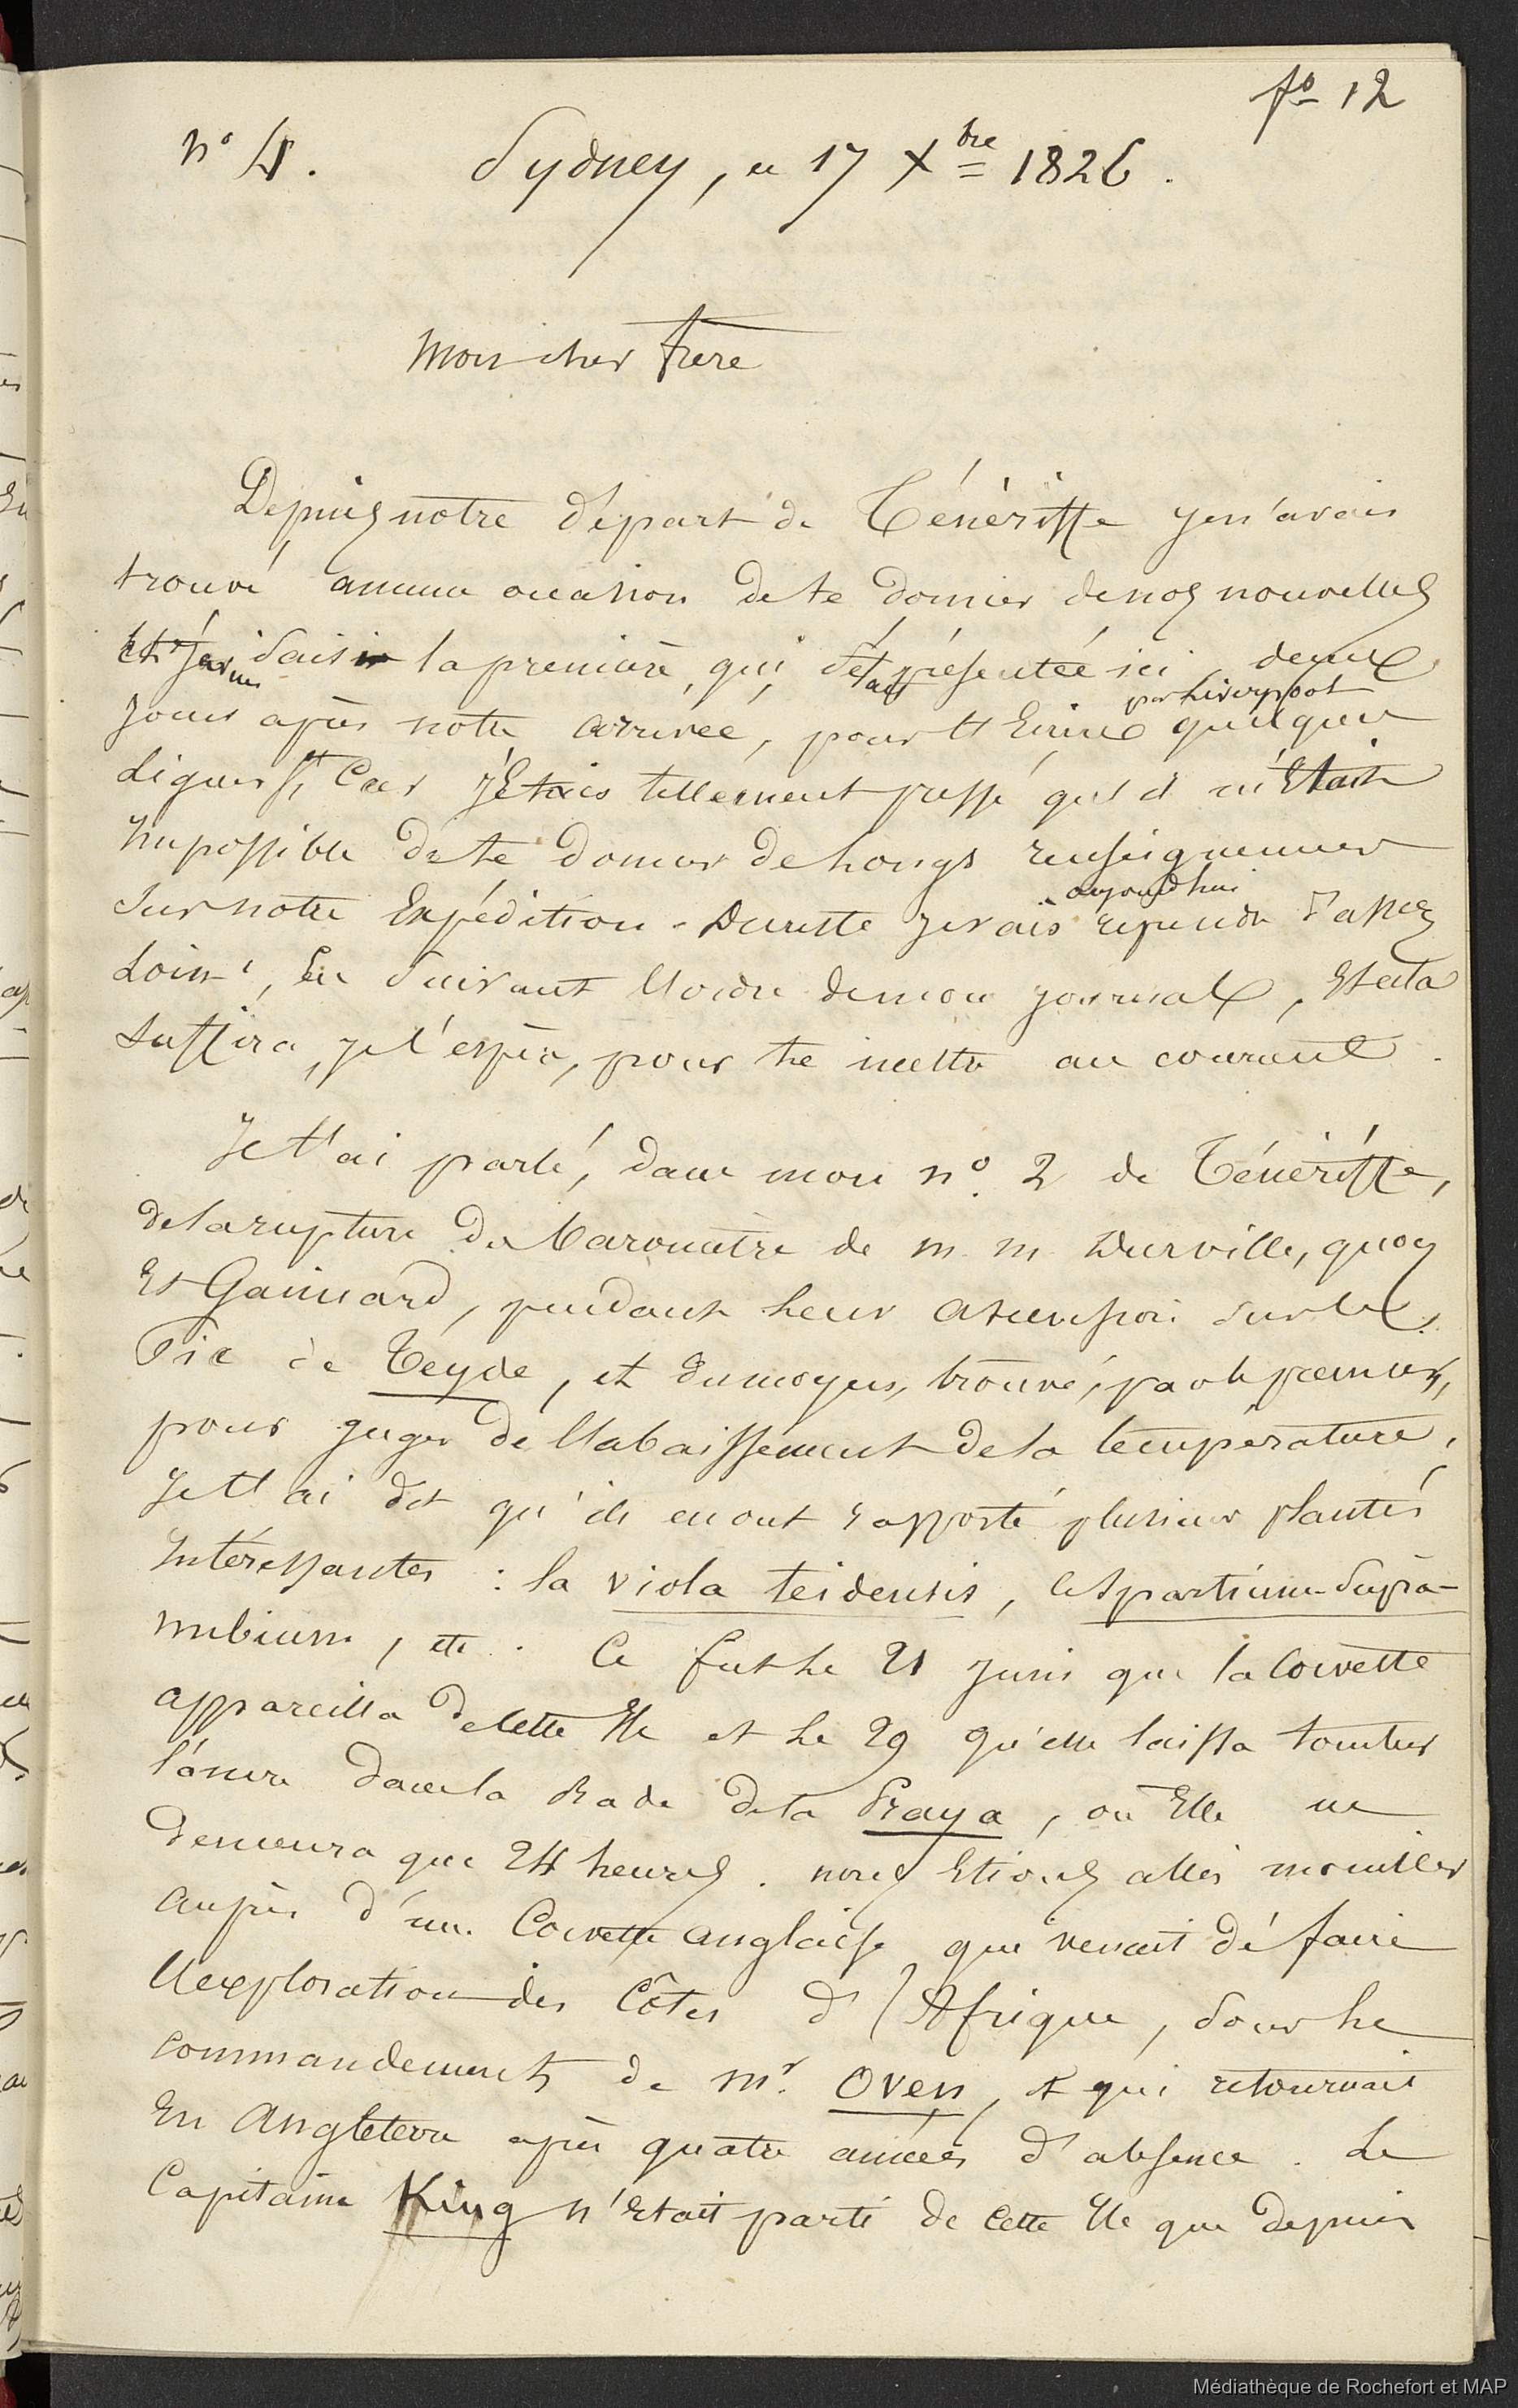 fo 12
n° 4. Sydney, le 17 Xbre 1826.
Mon cher frère
Depuis notre départ de Ténériffe je n'avais
trouvé aucune occasion de te donner de nos nouvelles
saisir la première, qui présentée ici, deux
par Liverpool
jours après notre arrivée, pour t'écrire quelques
lignes, car j'étais tellement pressé qu'il m'était
impossible de te donner de longs renseignemens
aujourd'hui
sur notre Expédition. Du reste je vais reprendre d'assez
loin, en suivant l'ordre de mon journal, et cela
suffira, je l'espère, pour te mettre au courant.
Je t'ai parlé, dans mon n° 2 de Ténériffe,
de la rupture du baromètre de m. m. Durville, quoy
et Gaimard, pendant leur ascension sur le
Pic de Teyde, et du moyen, trouvé, par le premier,
pour juger de l'abaissement de la température,
Je t'ai dit qu'ils en ont rapporté plusieurs plantes
intéressantes : la viola teidensis, le spartium supra-
nubium, etc. Ce fut le 21 juin que la Corvette
appareilla de cette île et le 29 qu'elle laissa tomber
l'ancre dans la Rade de la Praya, où Elle ne
demeura que 24 heures. nous étions allés mouiller
auprès d'une Corvette anglaise qui venait de faire
l'exploration des Côtes d'Afrique, sous le
commandement de mr. Oven, et qui retournait
En Angleterre après quatre années d'absence. Le
Capitaine King n'était parti de cette île que depuis
Médiathèque de Rochefort et MAP